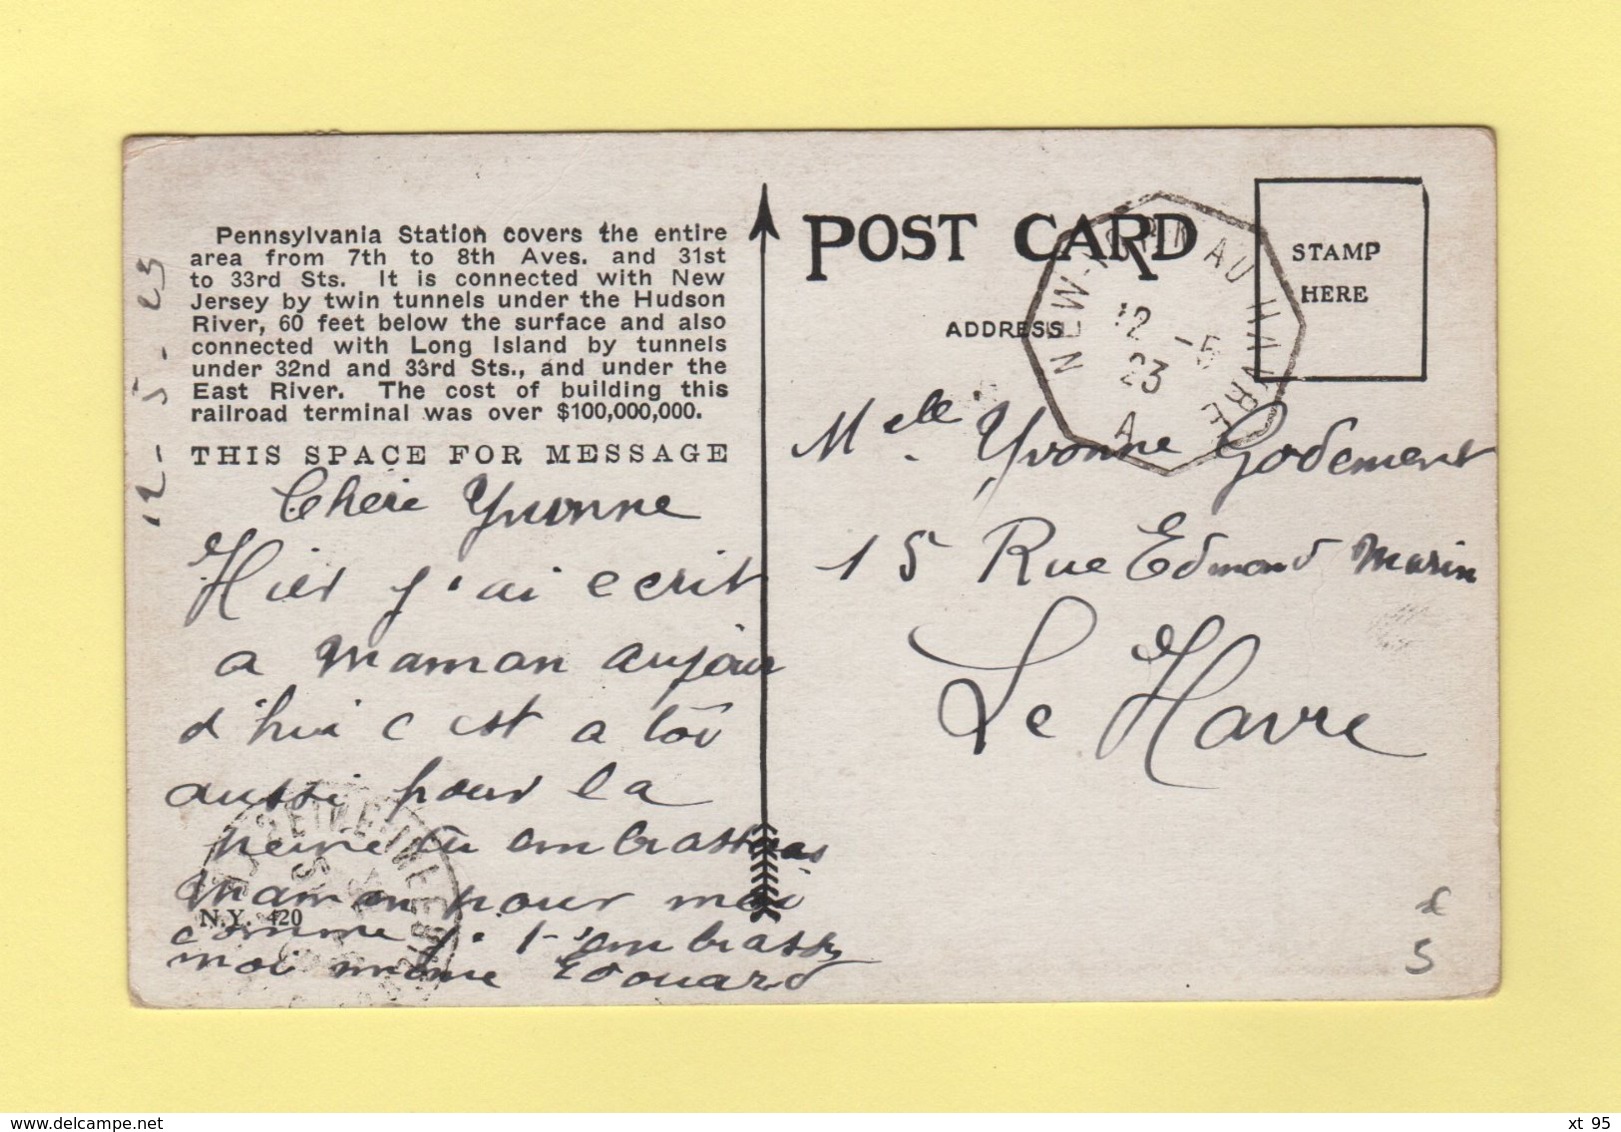 Pennsylvania Station covers the entire
area from 7th to 8th Aves. and 31st
to 33rd Sts. It is connected with New
Jersey by twin tunnels under the Hudson
River, 60 feet below the surface and also
connected with Long Island by tunnels
under 32nd and 33rd Sts., and under the
East River. The cost of building this
railroad terminal was over $100,000,000.
THIS SPACE FOR MESSAGE
12-5-23
Cheri Yvonne
Hier j'ai ecrit
a maman aujour
d'hui c est a toi
aussi pour la
peine tu embrasseras
maman pour moi
comme je t'embrasse
moi meme Edouard
N.Y. 420
POST CARD
ADDRESS
STAMP
HERE
NEW-YORK AU HAVRE
12 -5
23
A
Melle. Yvonne Godement
15 Rue Edmond Marin
Le Havre
5
www.delcampe.net
xt 95